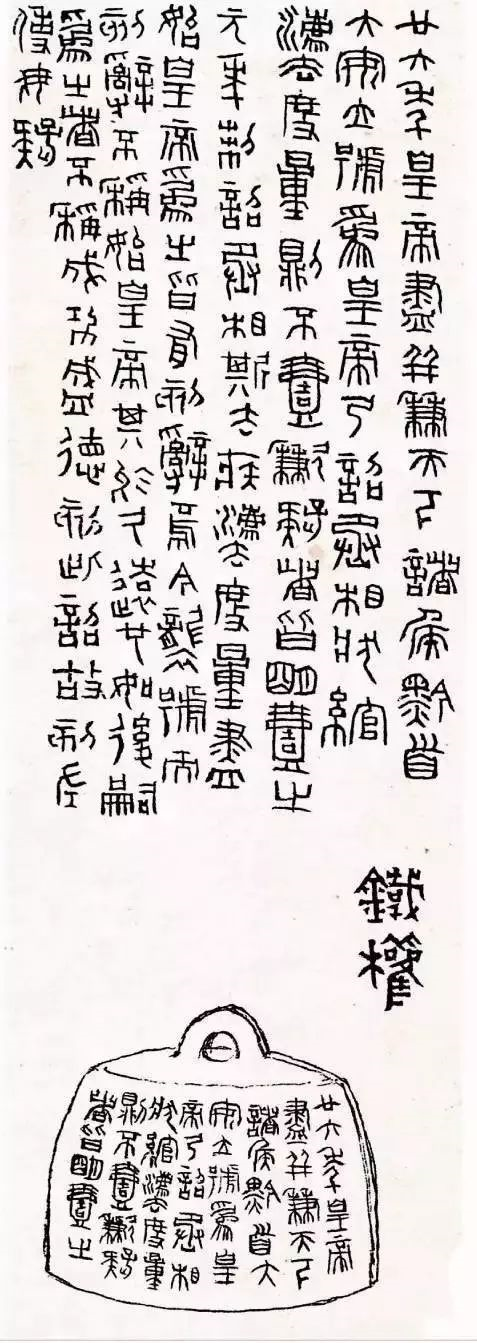 廿六年皇帝盡并兼天下諸侯黔首
大安立號爲皇帝乃詔丞相狀綰
灋度量則不壹歉疑者皆明壹之
元年制詔丞相斯去疾灋度量盡
始皇帝爲之皆有刻辭焉今襲號而
刻辭不稱始皇帝其於久遠也如後嗣
爲之者不稱成功盛德刻此詔故刻左
使毋疑
鐵權
廿六年皇帝
盡并兼天下
諸侯黔首大
安立號爲皇
帝乃詔丞相
狀綰灋度量
則不壹歉疑
者皆明壹之